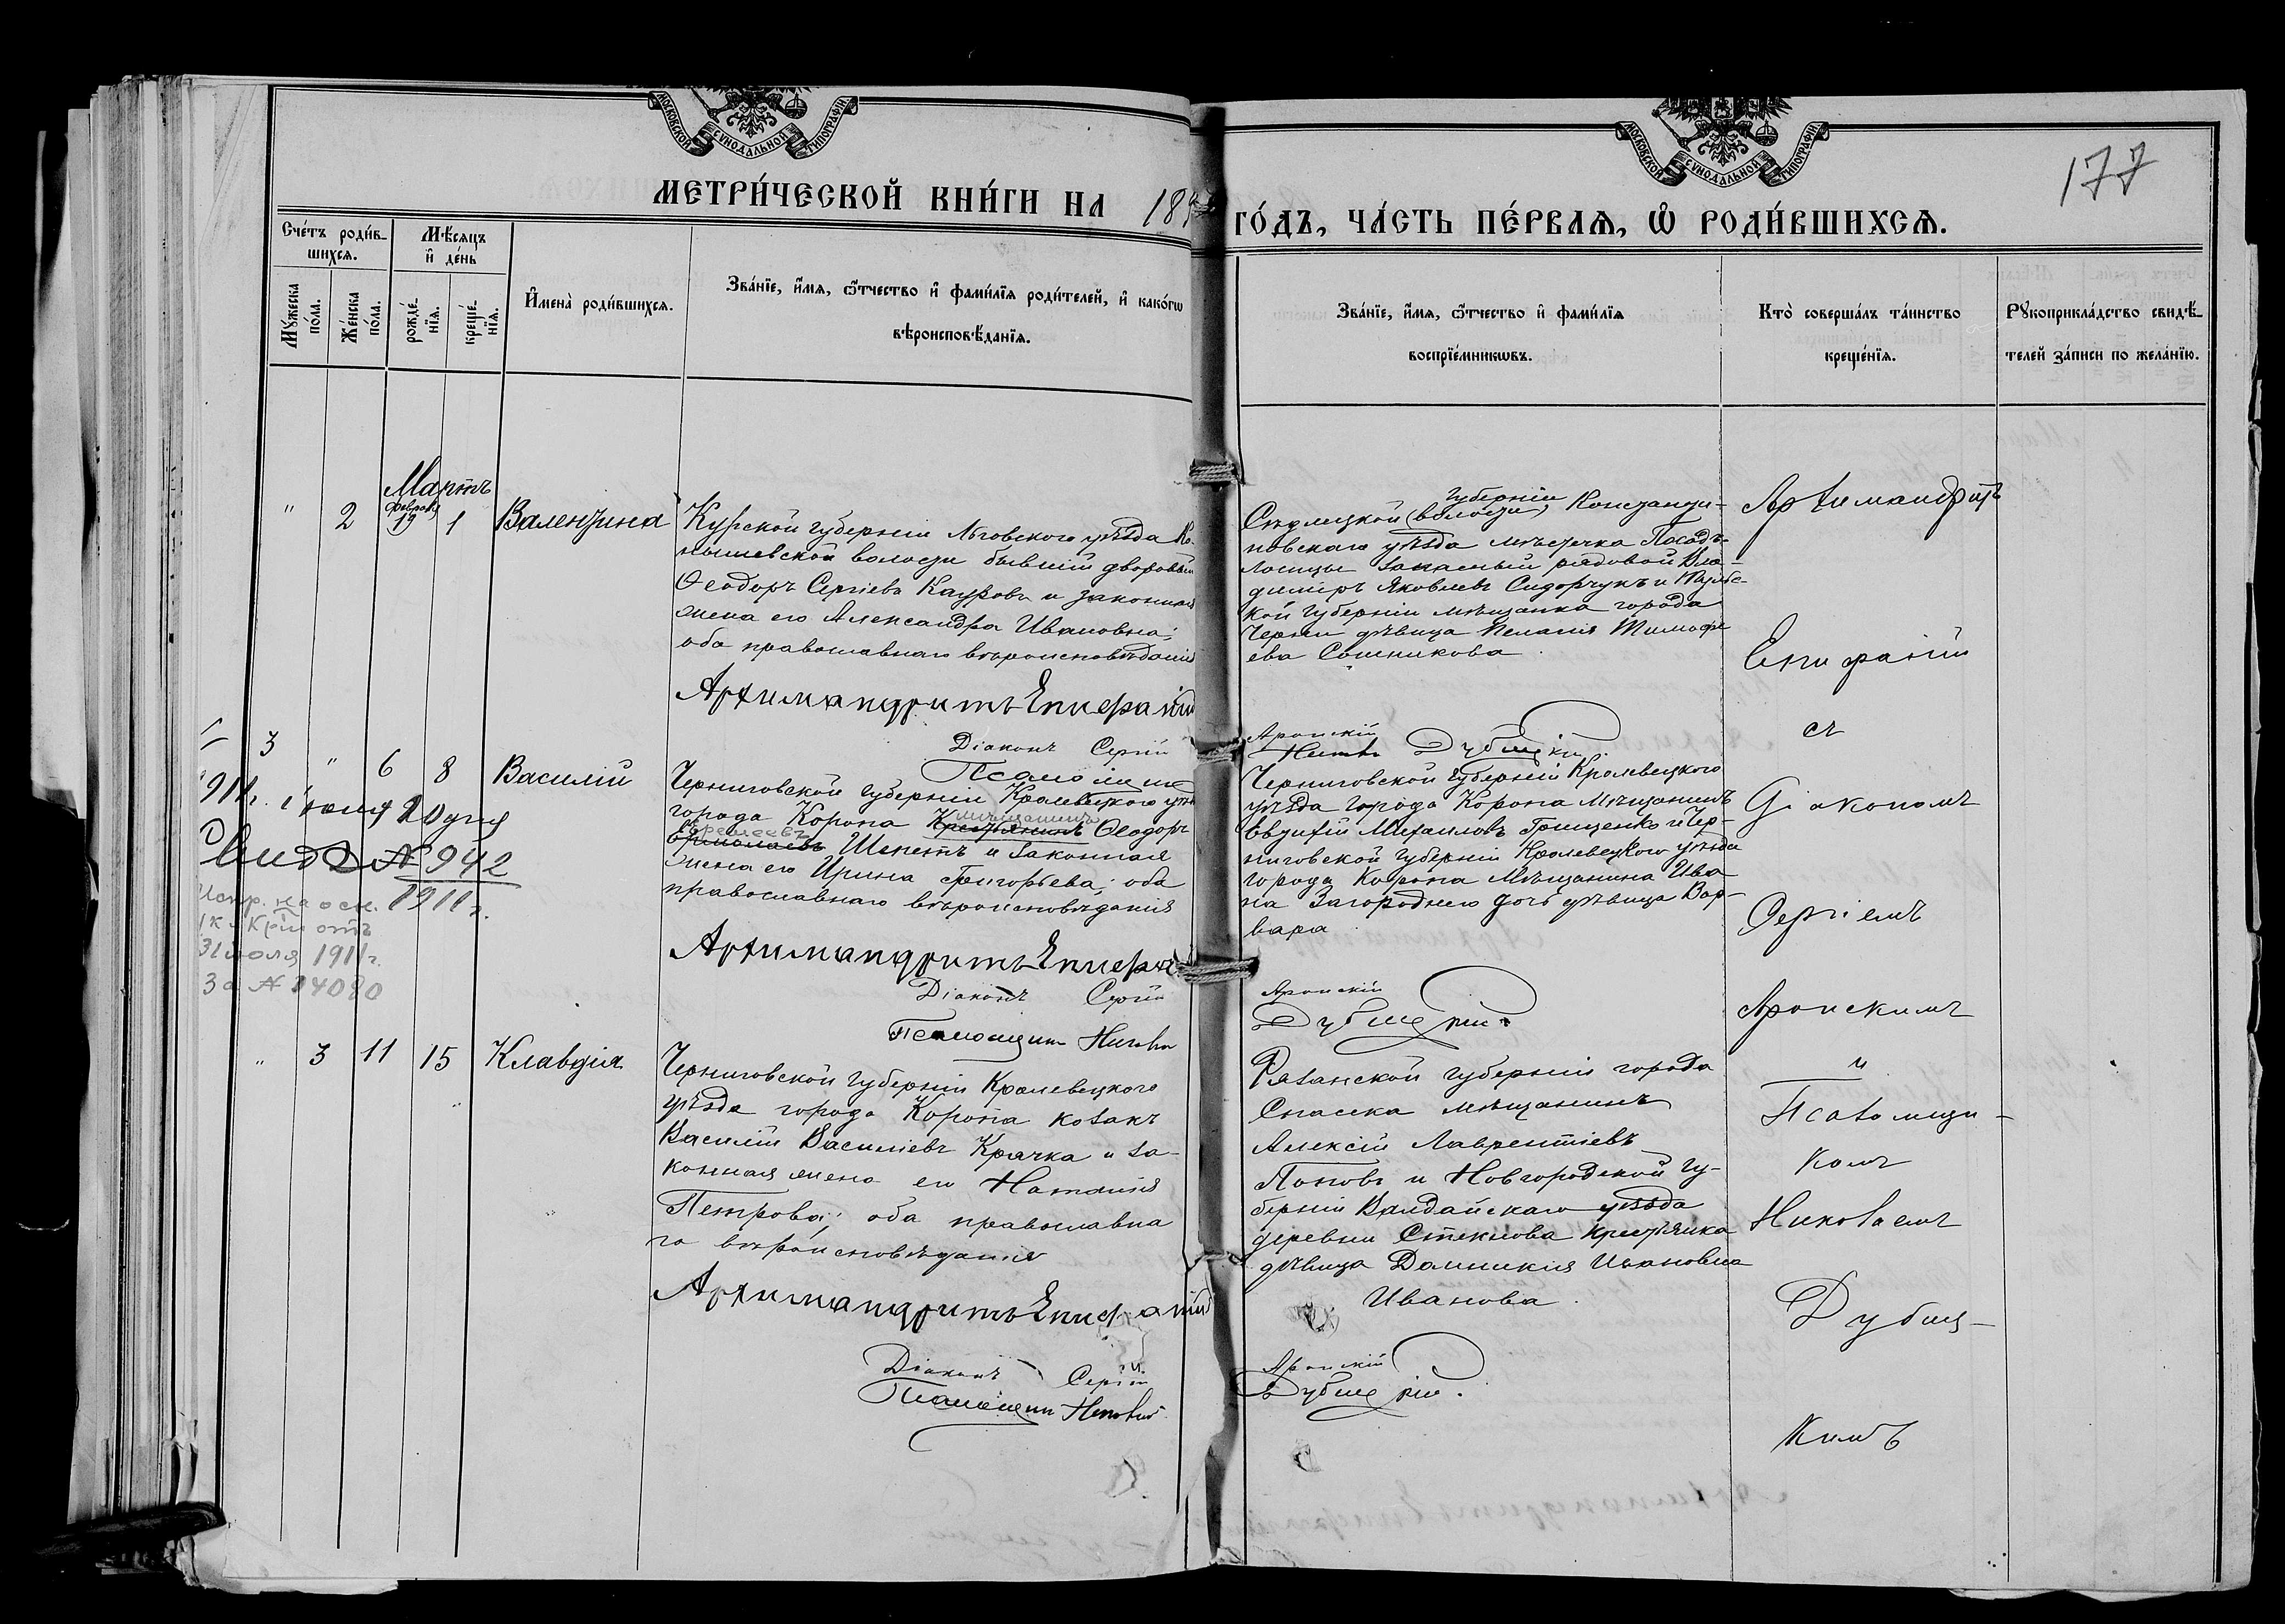 МОСКОВСКОЙ СУНОДАЛЬНОЙ ТИПОГРАФІИ
МОСКОВСКОЙ СУНОДАЛЬНОЙ ТИПОГРАФІИ
177
МЕТРИ́ЧЕСКОЙ КНИ́ГИ НА 189
ГО́ДЪ, ЧА́СТЬ ПЕ́РВАѦ, Ѽ РОДИ́ВШИХСѦ.
Сче́тъ роди́в-
шихсѧ.
Мꙋ́жеска
по́ла.
Же́нска
по́ла.
Мѣ́сѧцъ
и҆ де́нь
рожде́-
нїѧ.
креще́-
нїѧ.
И҆мена̀ роди́вшихсѧ.
Зва́нїе, и҆́мѧ, ѻ҆́тчество и҆ фами́лїѧ роди́телей, и҆ како́гѡ
вѣроисповѣ́данїѧ.
Зва́нїе, и҆́мѧ, ѻ҆́тчество и҆ фами́лїѧ
воспрїе́мникѡвъ.
Кто̀ соверша́лъ та́инство
креще́нїѧ.
Рꙋкоприкла́дство свидѣ́-
телей за́писи по жела́нїю.
Мартъ
"
2
февраля
19
1
Валентина
Курской губерніи Льговскаго уѣзда Ко-
нышевской волости бывшій дворовый
Ѳеодоръ Сергіевъ Кауровъ и законная
жена его Александра Ивановна;
оба православнаго вѣроисповѣданія
Архимандритъ Епифаній
Діаконъ Сергій
Псаломщикъ
губерніи
Сѣдлецкой (волости, Константи-
новскаго уѣзда мѣстечка Посадъ-
Лосицы запасный рядовой Вла-
диміръ Яковлевъ Сидорчукъ и Тульс-
кой губерніи мѣщанка города
Черни дѣвица Пелагія Тимофе
ева Сошникова.
Аронскій
Дубицкій.
Архимандритъ
Епифаній
съ
Діакономъ
Сергіемъ
Аронскимъ
и
Псаломщи-
комъ
Николаемъ
Дубиц-
кимъ
3
"
6
8
Василій
Черниговской губерніи Кролевецкого уѣз
города Коропа крестьянинъ мѣщанинъ Ѳеодоръ
Ермолаевъ Еремеевъ Шепетъ и законная
жена его Ирина Григорьева; оба
православнаго вѣроисповѣданія
Архимандритъ Епифаній
Діаконъ Сергій
Псаломщикъ Николай
Черниговской губерніи Кролевецкого
уѣзда города Коропа мѣщанинъ
Евдикій Михаиловъ Грищенко и Чер-
ниговской губерніи Кролевецкого уѣзда
города Коропа мѣщанина Ива
на Загороднего дочь дѣвица Вар-
вара
Аронскій
Дубицкій.
911г. іюля 20 дня
Вид № 942
1911 г.
Испр. на осн.
ук. Кр. отъ
31 іюля 1911 г.
За № 14080
"
3
11
15
Клавдія
Черниговской губерніи Кролевецкого
уѣзда города Коропа козакъ
Василій Василіевъ Крячка и за-
конная жена его Наталія
Петрова; оба православна
го вѣроисповѣданія
Архимандритъ Епифаній
Діаконъ Сергій
Псаломщикъ Николай
Рязанской губерніи города
Спаска мѣщанинъ
Алексій Лаврентіевъ
Поповъ и Новгородской гу-
берніи Валдайскаго уѣзда
деревни Стеклова крестьянка
дѣвица Домникия Ивановна
Иванова.
Аронскій
Дубицкій.